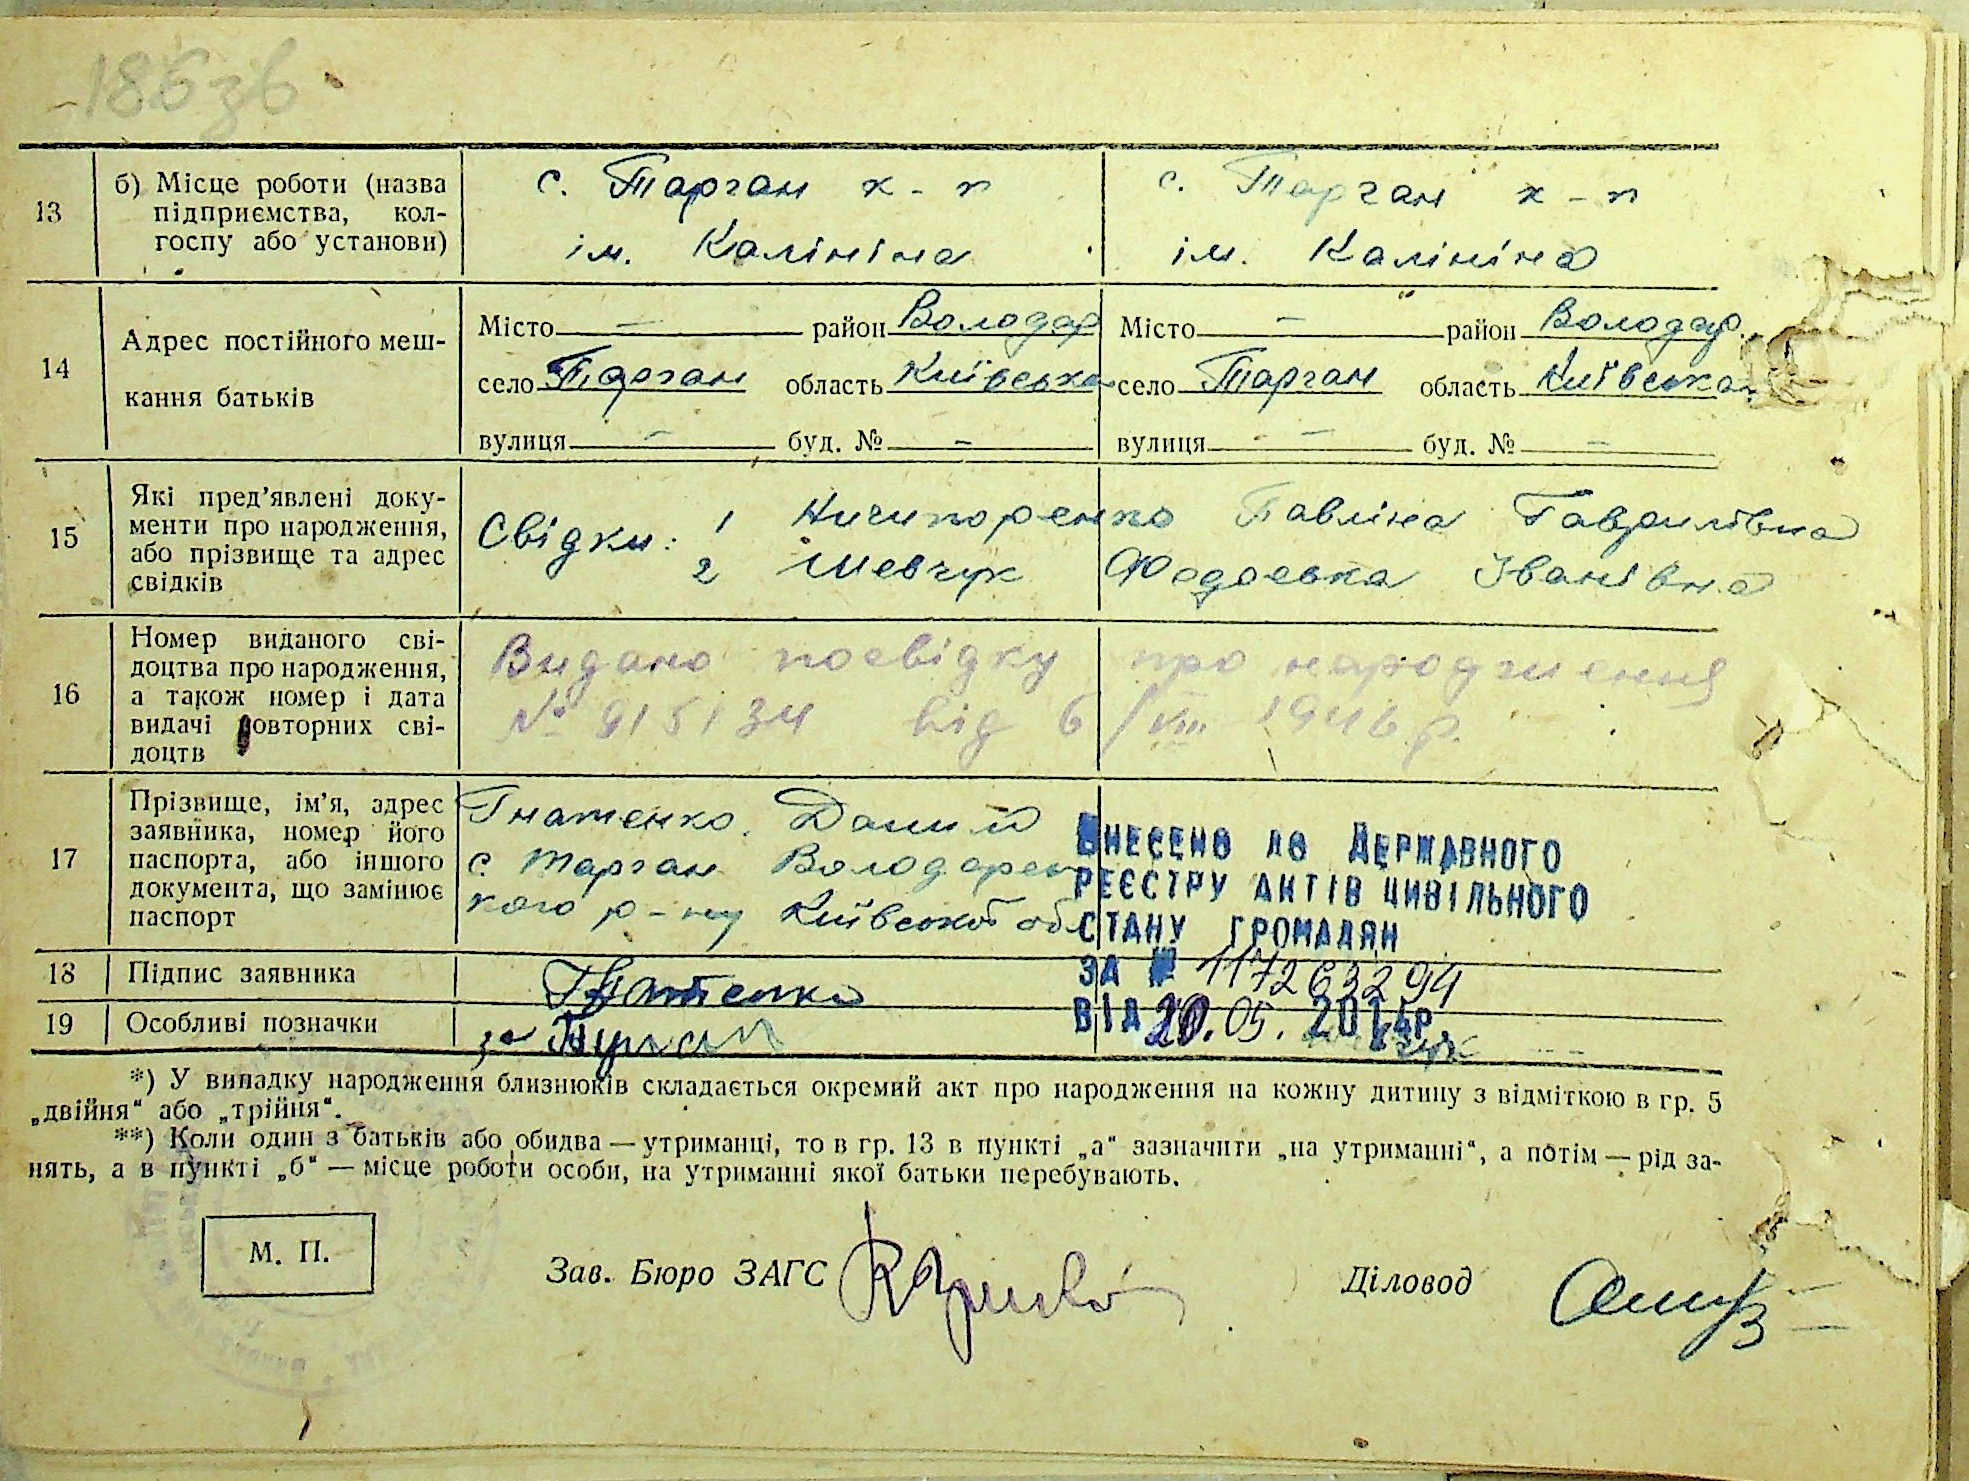 186зв
13 б) Місце роботи (назва підприємства, кол-госпу або установи) с. Тарган к-п с. Тарган к-п
ім. Калініна ім. Калініна
14 Адрес постійного меш-кання батьків
Місто — район Володар Місто — район Володар.
село Тарган область Київська село Тарган область Київська
вулиця — буд. № — вулиця — буд. № —
15 Які пред'явлені доку-менти про народження, або прізвище та адрес свідків
Свідки: 1 Ничипоренко Павліна Гаврилівна
2 Шевчук Федоська Іванівна
16 Номер виданого сві-доцтва про народження, а також номер і дата видачі повторних сві-доцтв
Видано посвідку про народження
№ 915134 від 6/VIII 1946 р.
17 Прізвище, ім'я, адрес заявника, номер його паспорта, або іншого документа, що замінює паспорт
Гнатенко Данило
с Тарган Володарсь
кого р-ну Київської обл
Внесено до Державного
реєстру актів цивільного
стану громадян
за № 117263294
від 20.05.2014р.
18 Підпис заявника Гнатенко
19 Особливі позначки
*) У випадку народження близнюків складається окремий акт про народження на кожну дитину з відміткою в гр. 5
„двійня“ або „трійня“.
**) Коли один з батьків або обидва — утриманці, то в гр. 13 в пункті „а“ зазначити „на утриманні“, а потім — рід за-
нять, а в пункті „б“ — місце роботи особи, на утриманні якої батьки перебувають.
М. П. Зав. Бюро ЗАГС Діловод